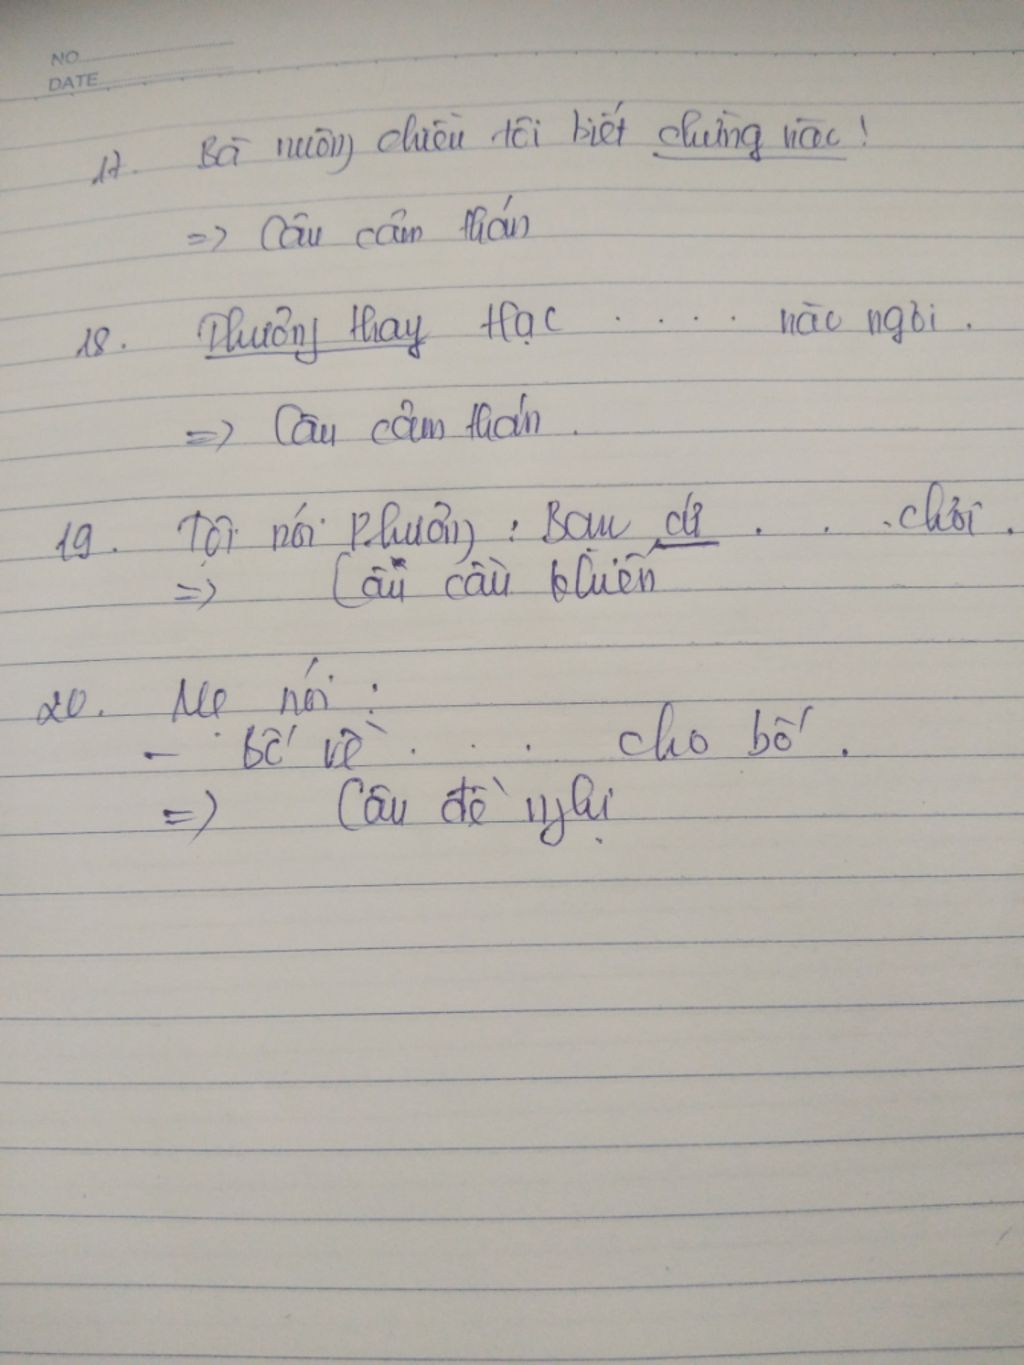 NO
DATE
17. Bà nuông chiều tôi biết chừng nào!
=> Câu cảm thán
18. Thưởng thay Hạc .... nào ngơi.
=> Câu cảm thán.
19. Tôi nói Phưởng: Bạn cứ . . . chơi.
=> Câu cầu khiến
20. Mẹ nói:
- Bố về . . . cho bố.
=> Câu đề nghị